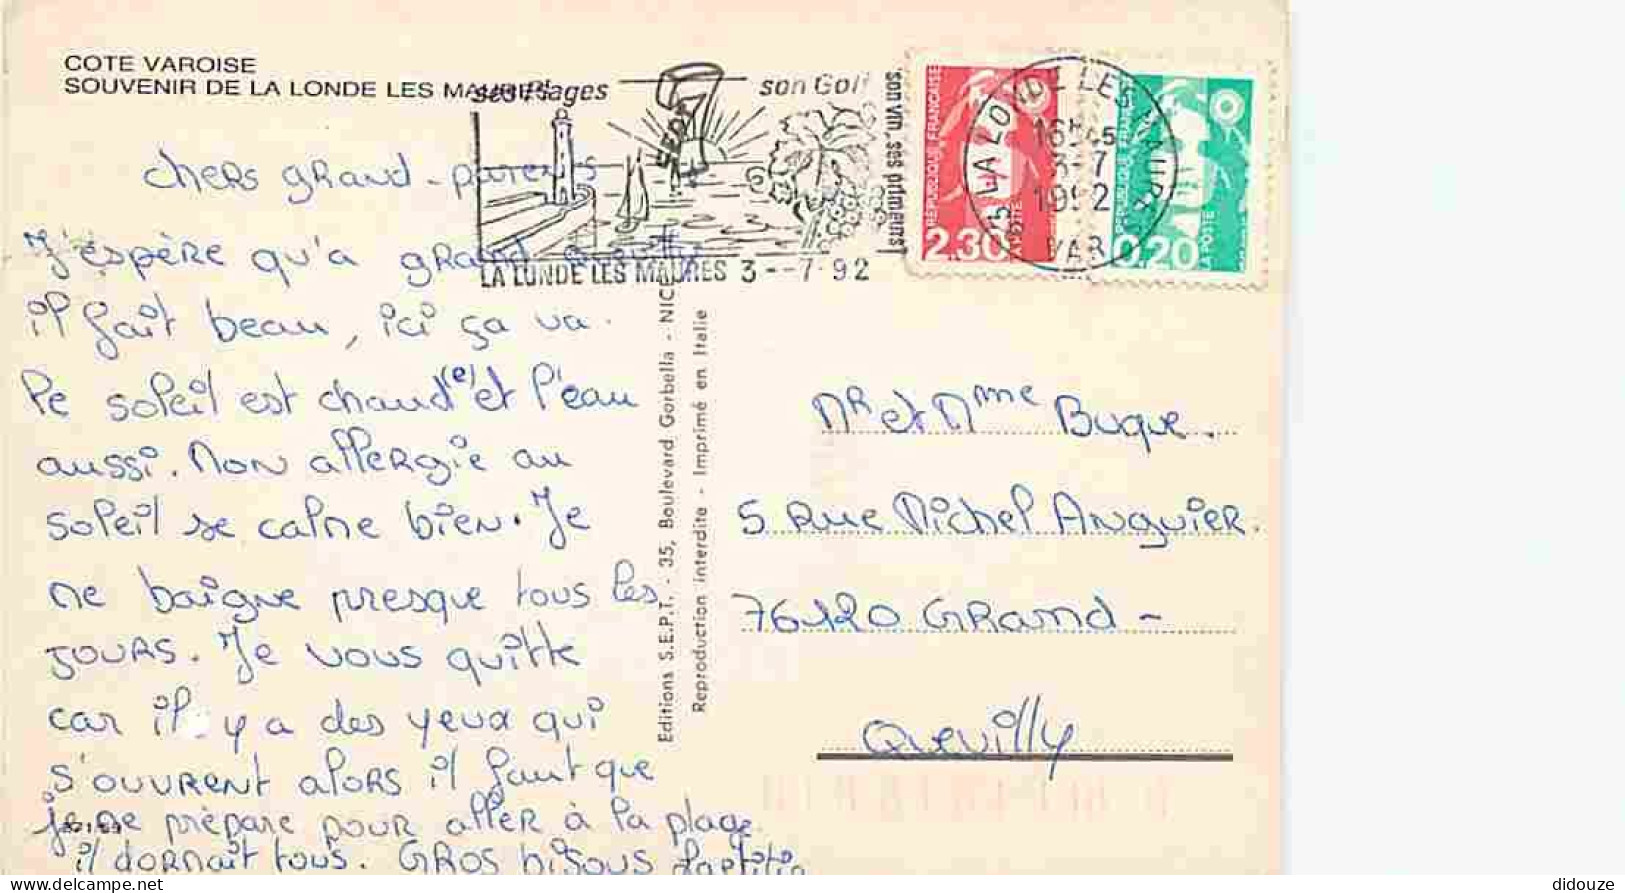 COTE VAROISE
SOUVENIR DE LA LONDE LES MAURES
ses Plages son Golf
son vin, ses artisans
LA LONDE LES MAURES 3--7-92
LA LONDE LES MAURES
16H45
3-7
1992
VAR
RÉPUBLIQUE FRANÇAISE
2.30 LA POSTE
RÉPUBLIQUE FRANÇAISE
0,20 LA POSTE
chers grand-parents
J'espère qu'a grand quevilly
il fait beau, ici ça va.
le soleil est chaud(e) et l'eau
aussi. Mon allergie au
soleil se calme bien. Je
me baigne presque tous les
jours. Je vous quitte
car il y a des yeux qui
s'ouvrent alors il faut que
je me prépare pour aller à la plage
il dormait tous. Gros bisous Laetitia
Editions S.E.P.T. - 35, Boulevard Gorbella - NICE
Reproduction interdite - Imprimé en Italie
Mr et Mme Buque.
5 Rue Michel Anguier.
76120 Grand -
Quevilly
didouze